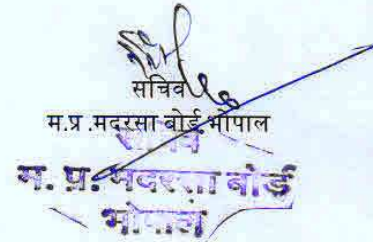 सचिव
म.प्र.मदरसा बोर्ड भोपाल
सचिव
म. प्र. मदरसा बोर्ड
भोपाल